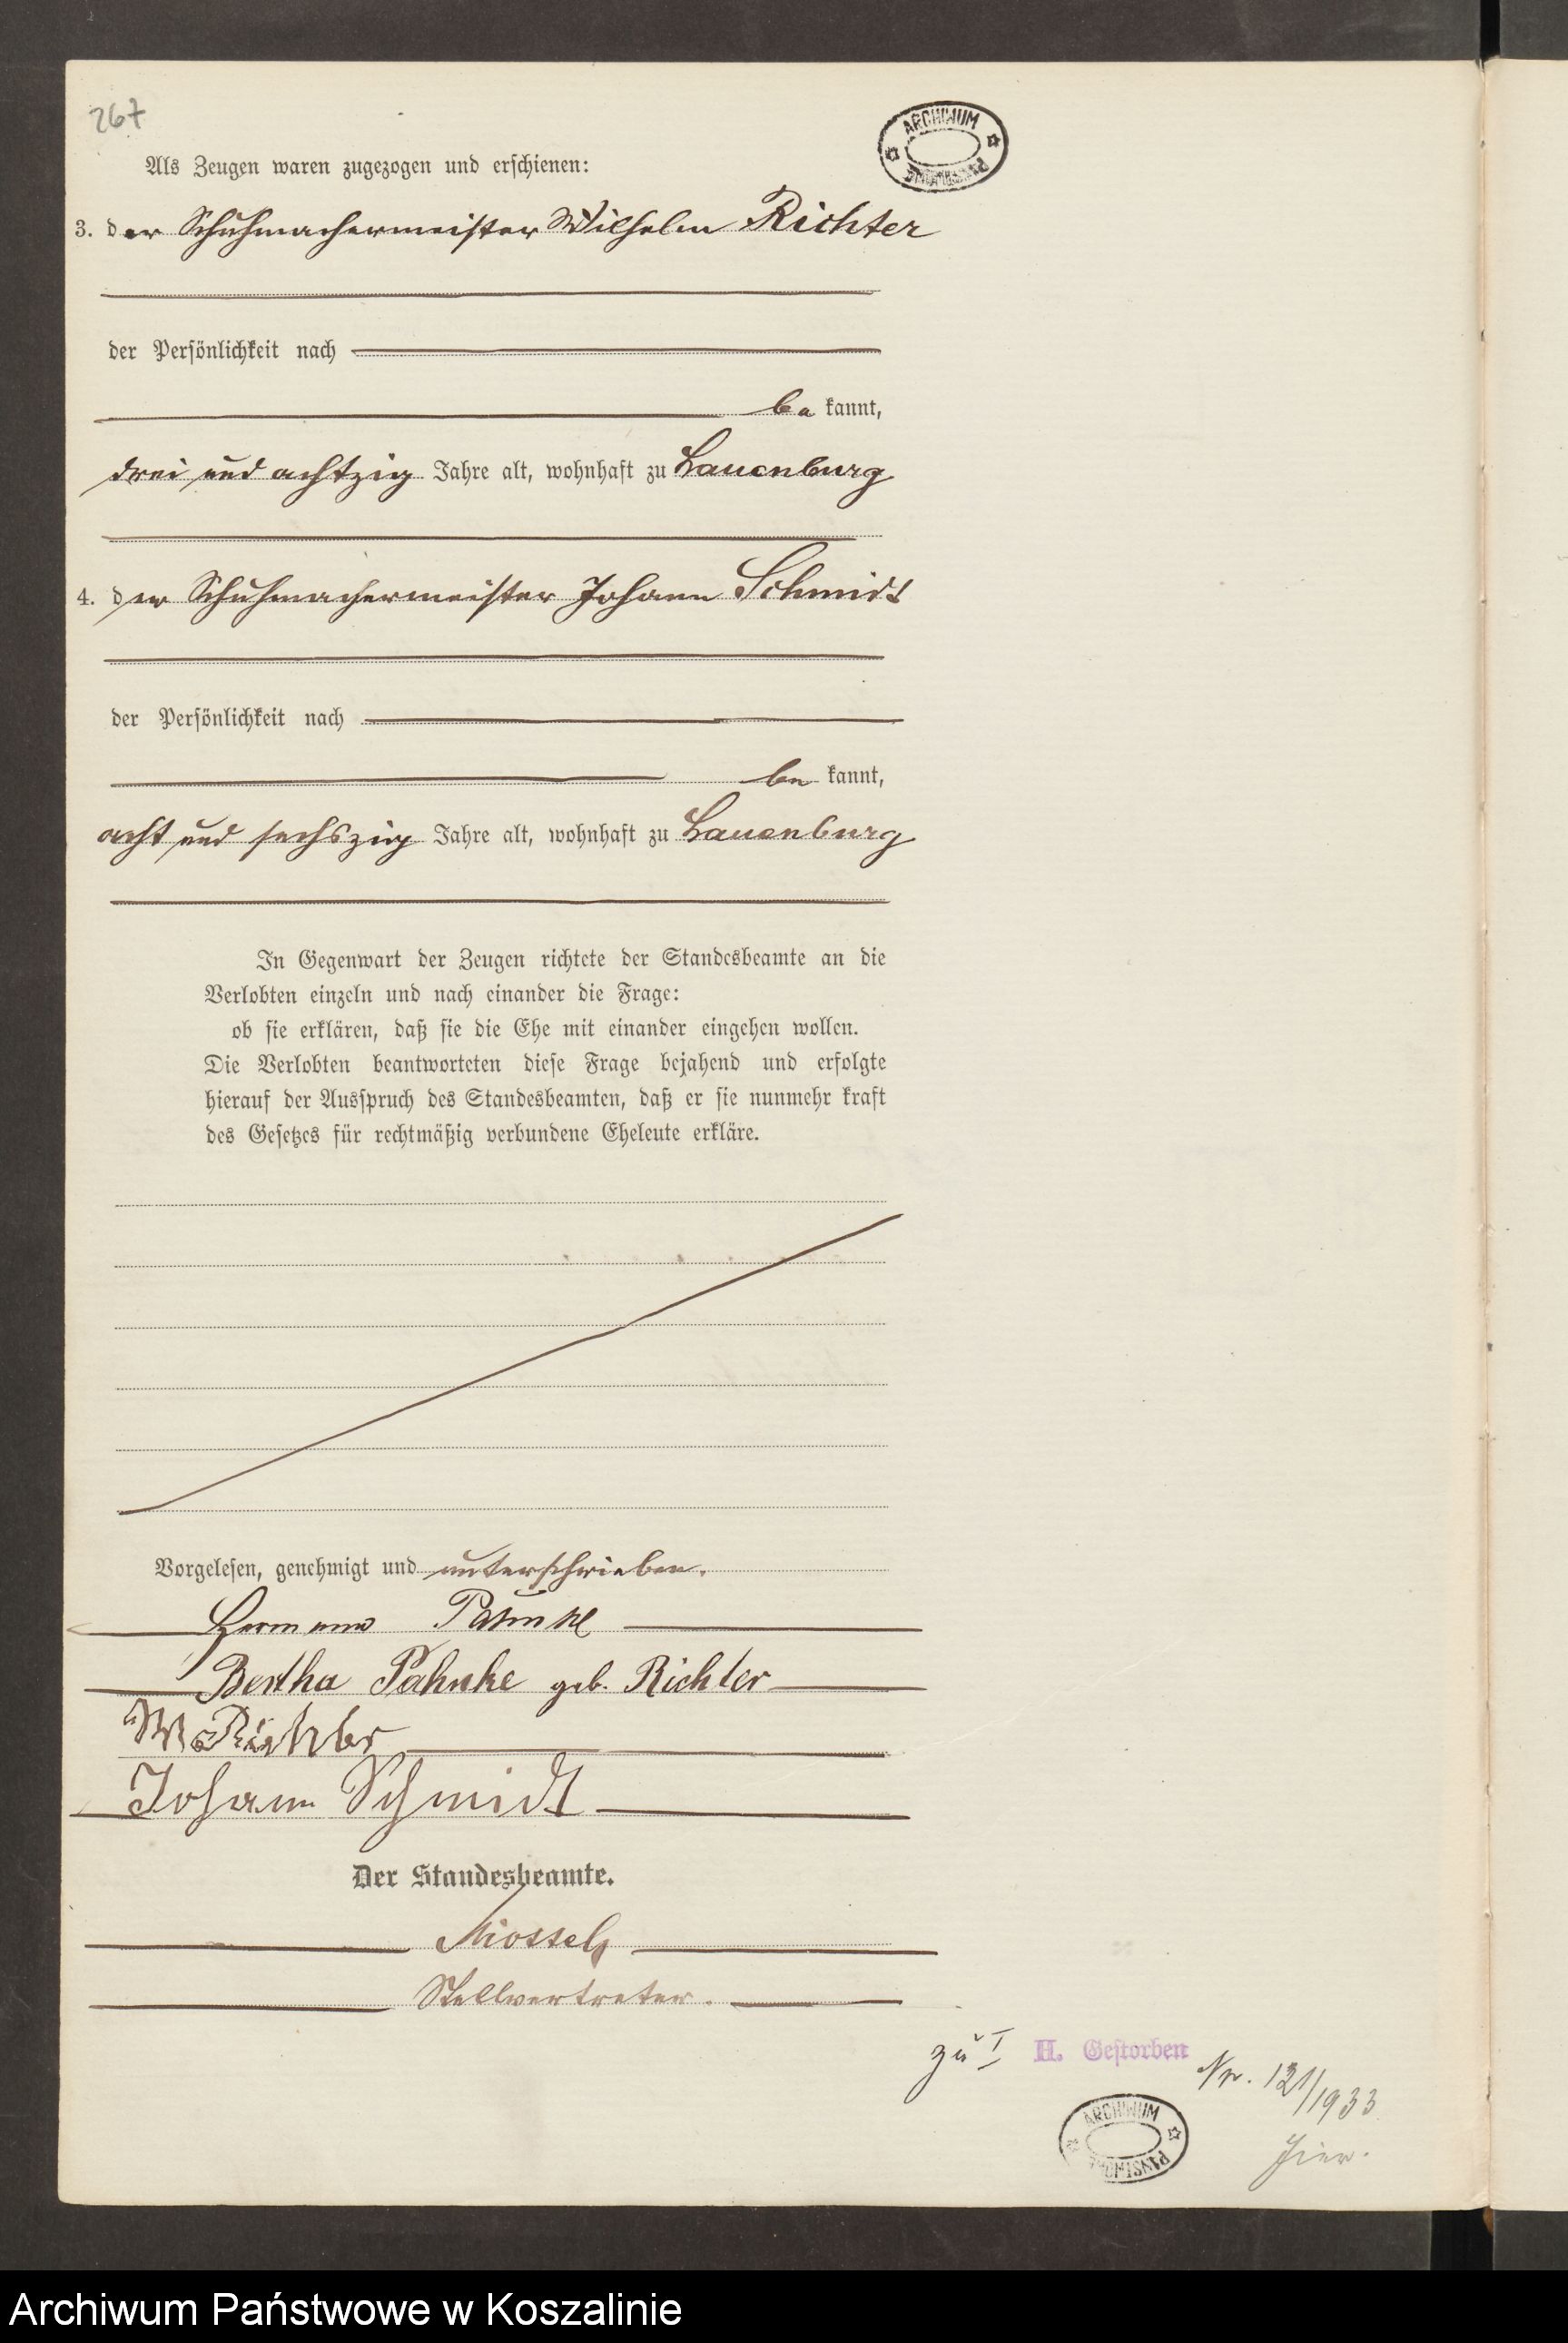 267
ARCHIWUM
Als Zeugen waren zugezogen und erschienen:
3. der Schuhmachermeister Wilhelm Richter
der Persönlichkeit nach
be kannt,
drei und achtzig Jahre alt, wohnhaft zu Lauenburg
4. der Schuhmachermeister Johann Schmidt
der Persönlichkeit nach
be kannt,
acht und sechszig Jahre alt, wohnhaft zu Lauenburg
In Gegenwart der Zeugen richtete der Standesbeamte an die
Verlobten einzeln und nach einander die Frage:
ob sie erklären, daß sie die Ehe mit einander eingehen wollen.
Die Verlobten beantworteten diese Frage bejahend und erfolgte
hierauf der Ausspruch des Standesbeamten, daß er sie nunmehr kraft
des Gesetzes für rechtmäßig verbundene Eheleute erkläre.
Vorgelesen, genehmigt und unterschrieben.
Hermann Pahnke
Bertha Pahnke geb. Richter
W Richter
Johann Schmidt
Der Standesbeamte.
Stellvertreter.
zu I H. Gestorben Nr. 121/1933
hier.
ARCHIWUM
Archiwum Państwowe w Koszalinie